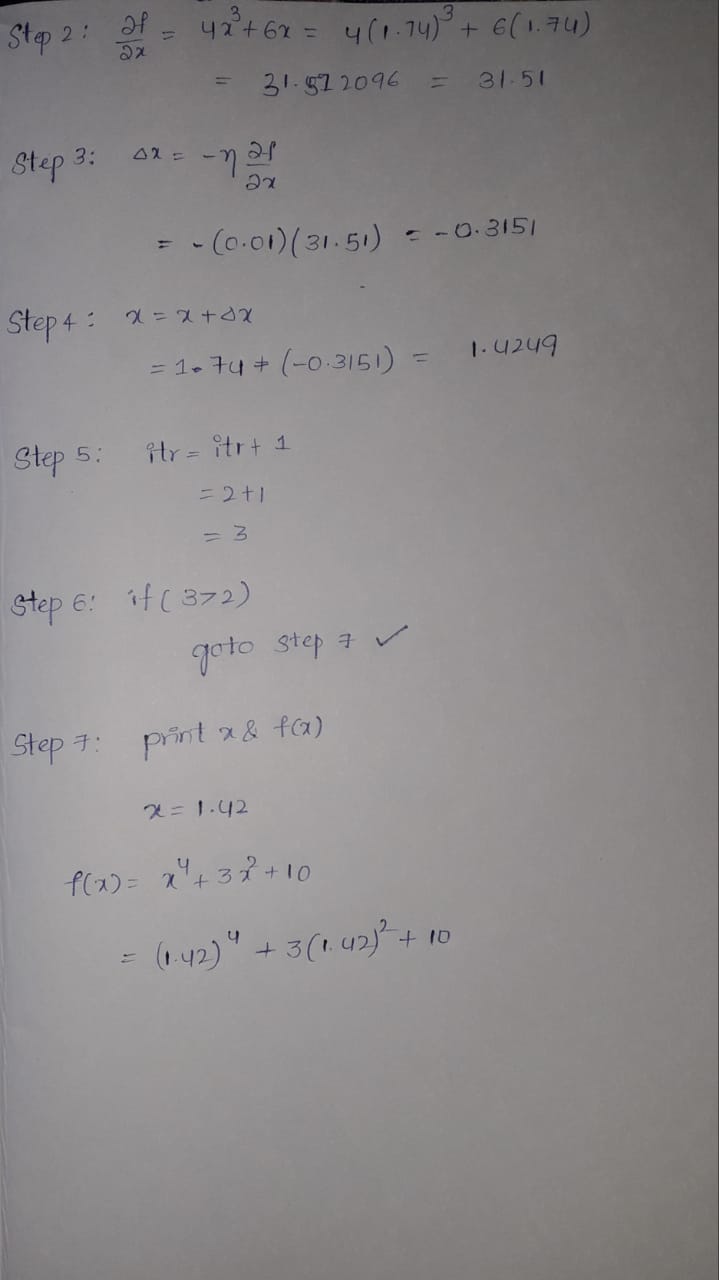 Step 2: ∂f/∂x = 4x³ + 6x = 4(1.74)³ + 6(1.74)
= 31.512096 = 31.51
Step 3: Δx = -η ∂f/∂x
= -(0.01)(31.51) = -0.3151
Step 4: x = x + Δx
= 1.74 + (-0.3151) = 1.4249
Step 5: itr = itr + 1
= 2+1
= 3
Step 6: if (3>2)
goto step 7 ✓
Step 7: print x & f(x)
x = 1.42
f(x) = x⁴ + 3x² + 10
= (1.42)⁴ + 3(1.42)² + 10